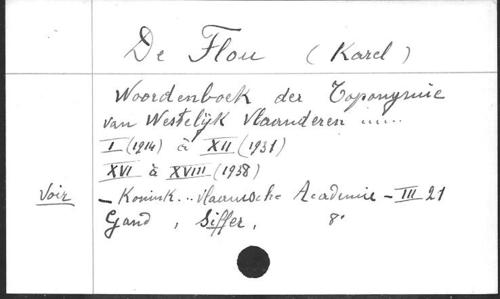 De Flou (Karel)
Woordenboek der Toponymie
van Westelijk Vlaanderen ......
I (1914) à XII (1931)
XVI à XVIII (1938)
Voir — Konink... Vlaamsche Academie - III 21
Gand, Siffer, 8°